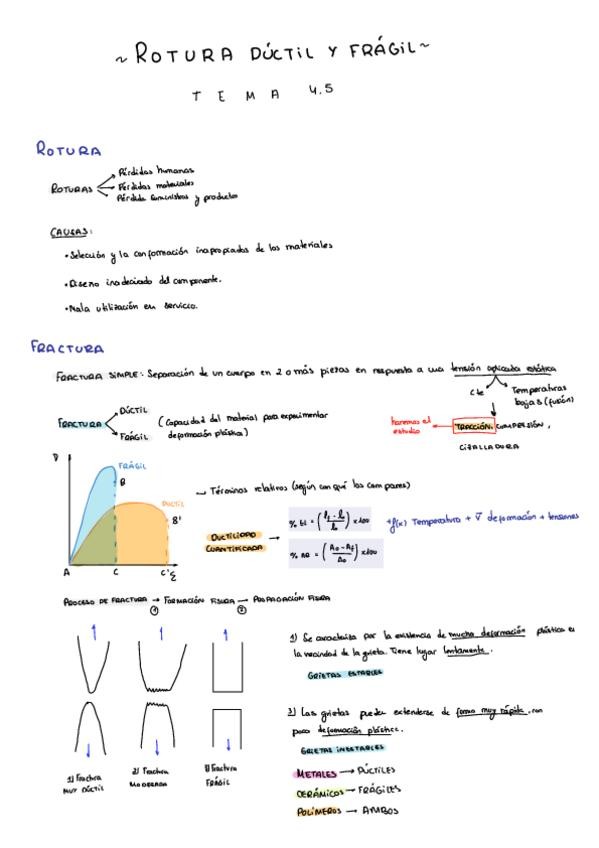 ~ ROTURA DÚCTIL Y FRÁGIL ~
TEMA 4.5
ROTURA
ROTURAS
Pérdidas humanas
Pérdidas materiales
Pérdida suministros y productos
CAUSAS:
• Selección y la conformación inapropiadas de los materiales
• Diseño inadecuado del componente.
• Mala utilización en servicio.
FRACTURA
FRACTURA SIMPLE: Separación de un cuerpo en 2 o más piezas en respuesta a una tensión aplicada estática
Cte
Temperaturas bajas (fusión)
FRACTURA
DÚCTIL
FRÁGIL
(Capacidad del material para experimentar deformación plástica)
haremos el estudio
TRACCIÓN, COMPRESIÓN,
CIZALLADURA
FRÁGIL
B
DUCTIL
B'
A
C
C'
ε
Términos relativos (según con qué los compares)
DUCTILIDAD CUANTIFICADA
% EL = (lf - l0 / l0) x 100
% AR = (A0 - Af / A0) x 100
+ f(x) Temperatura + V deformación + tensiones
PROCESO DE FRACTURA → FORMACIÓN FISURA → PROPAGACIÓN FISURA
1
2
1) Se caracteriza por la existencia de mucha deformación plástica en
la vecindad de la grieta. Tiene lugar lentamente.
GRIETAS ESTABLES
3) Las grietas pueden extenderse de forma muy rápida, con
poca deformación plástica.
GRIETAS INESTABLES
METALES → DÚCTILES
CERÁMICOS → FRÁGILES
POLÍMEROS → AMBOS
1) Fractura MUY DÚCTIL
2) Fractura MODERADA
Fractura FRÁGIL